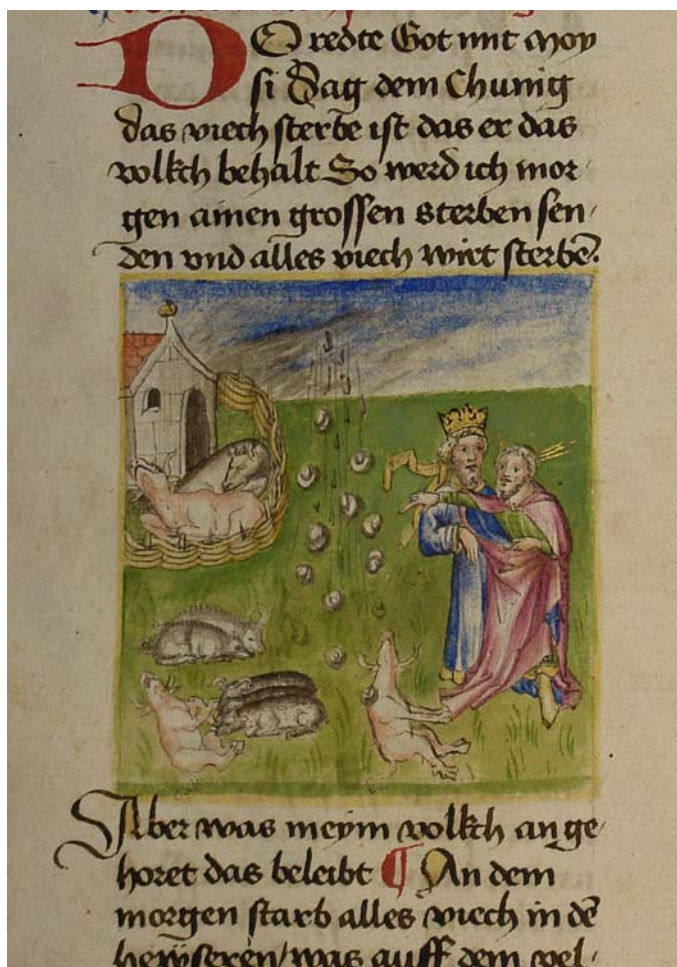 DO redte Got mit Moy
si Sag dem Chunig
das viech sterbē ist das er das
volkch behalt So werd ich mor
gen ainen grossen sterben sen
den vnd alles viech wirt sterbē.
Aber was meym volkch an ge
horet das beleibt ¶ An dem
morgen starb alles viech in dē
hewseren/ was auff dem vel